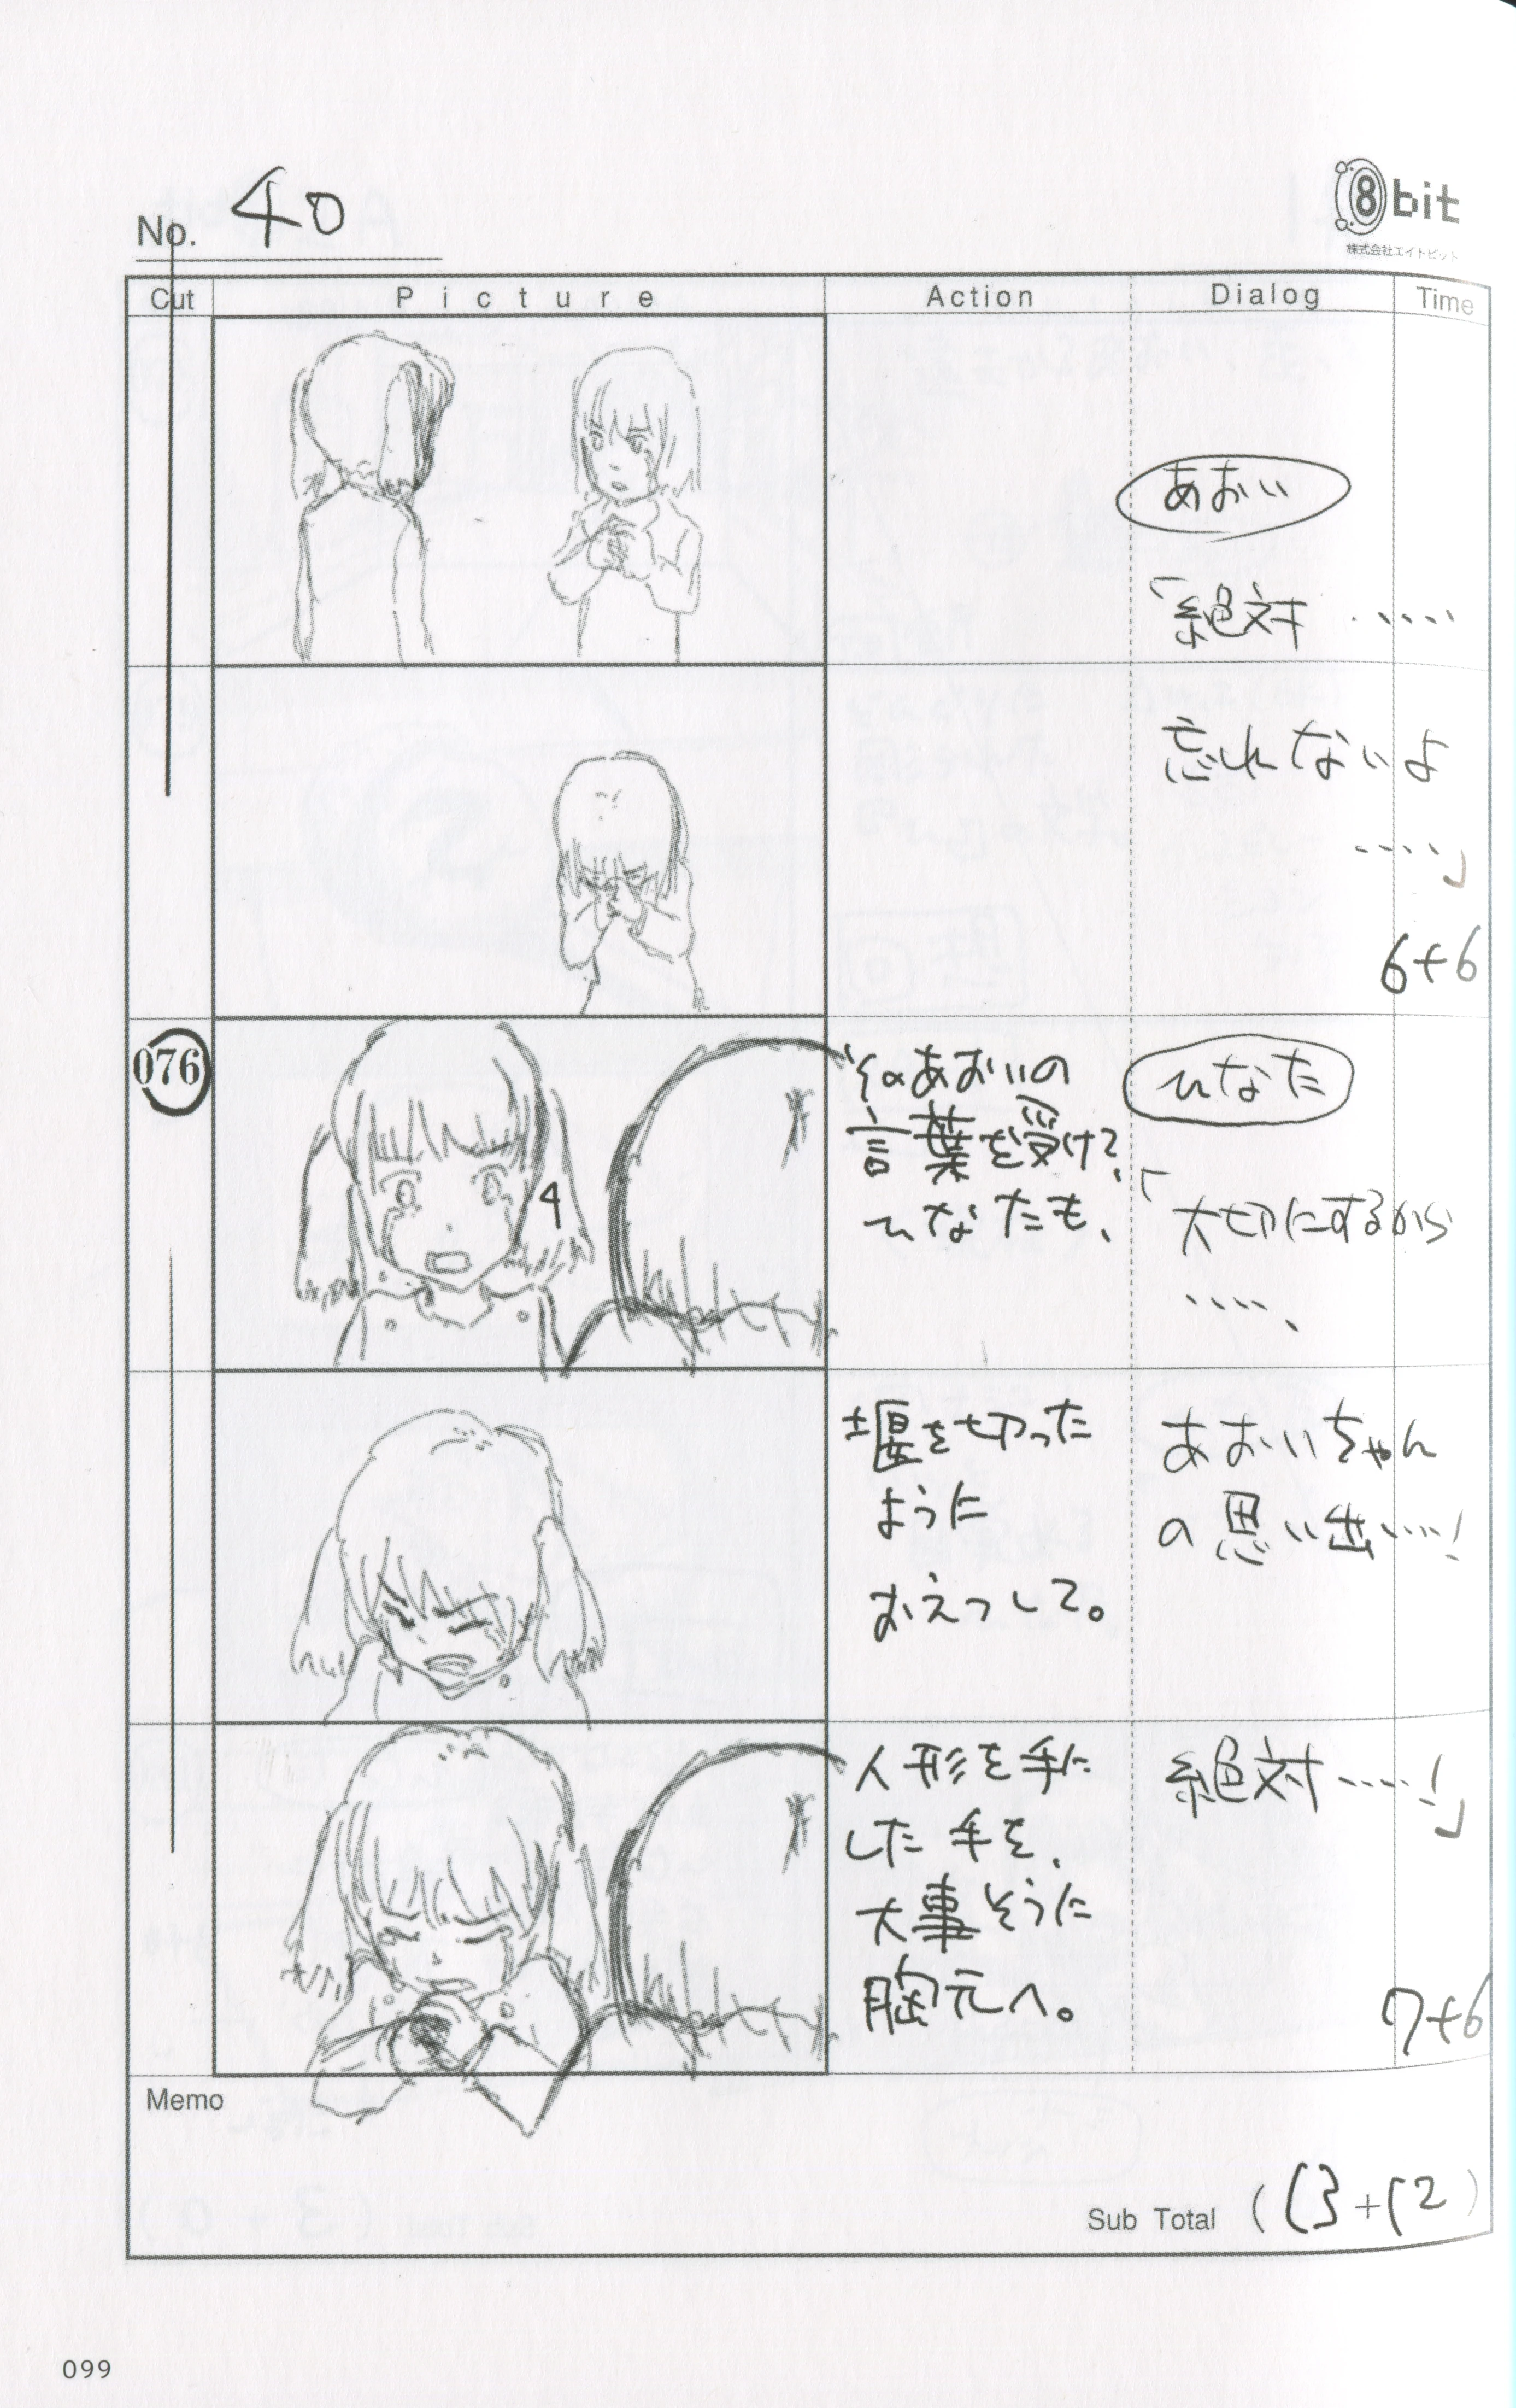 No. 40
8bit
株式会社エイトビット
Cut Picture Action Dialog Time
あおい
「絶対‥‥‥
忘れないよ
‥‥‥」
6+6
076
そのあおいの
言葉を受け、
ひなたも、
ひなた
「大切にするから
‥‥、
堰を切った
ように
おえつして。
あおいちゃん
の思い出‥‥!
人形を手に
した手を、
大事そうに
胸元へ。
絶対‥‥!」
7+6
Memo
Sub Total (13+12)
099